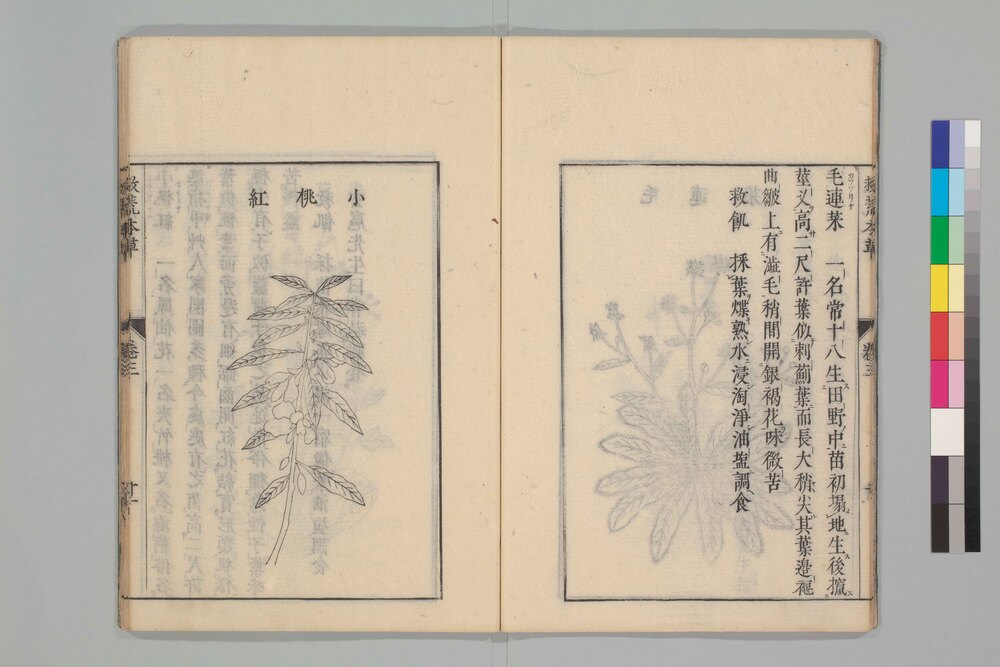 毛連菜 一名常十八生田野中苗初搨地生後攛
莖叉高二尺許葉似刺薊葉而長大稍尖其葉邉褗
曲皺上有澁毛稍間開銀褐花味微苦
救飢 採葉煠熟水浸淘淨油塩調食
救荒本草
卷三
小桃紅
救荒本草
卷三